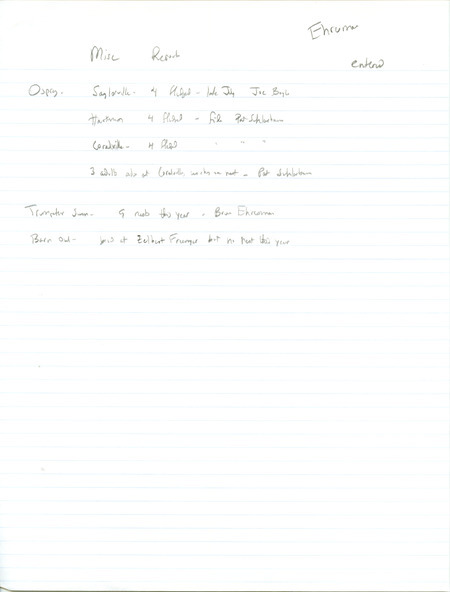 Misc Report
entered
Osprey - Saylorville - 4 fledged - late July Joe Boyle
Hartman 4 fledged - Pat Schlarbaum
Coralville - 4 fledged " " "
3 adults also at Coralville works on nest - Pat Schlarbaum
Trumpeter Swan - 9 nests this year - Ehresman
Barn Owl - bird at Zelbert Frunger but no nest this year